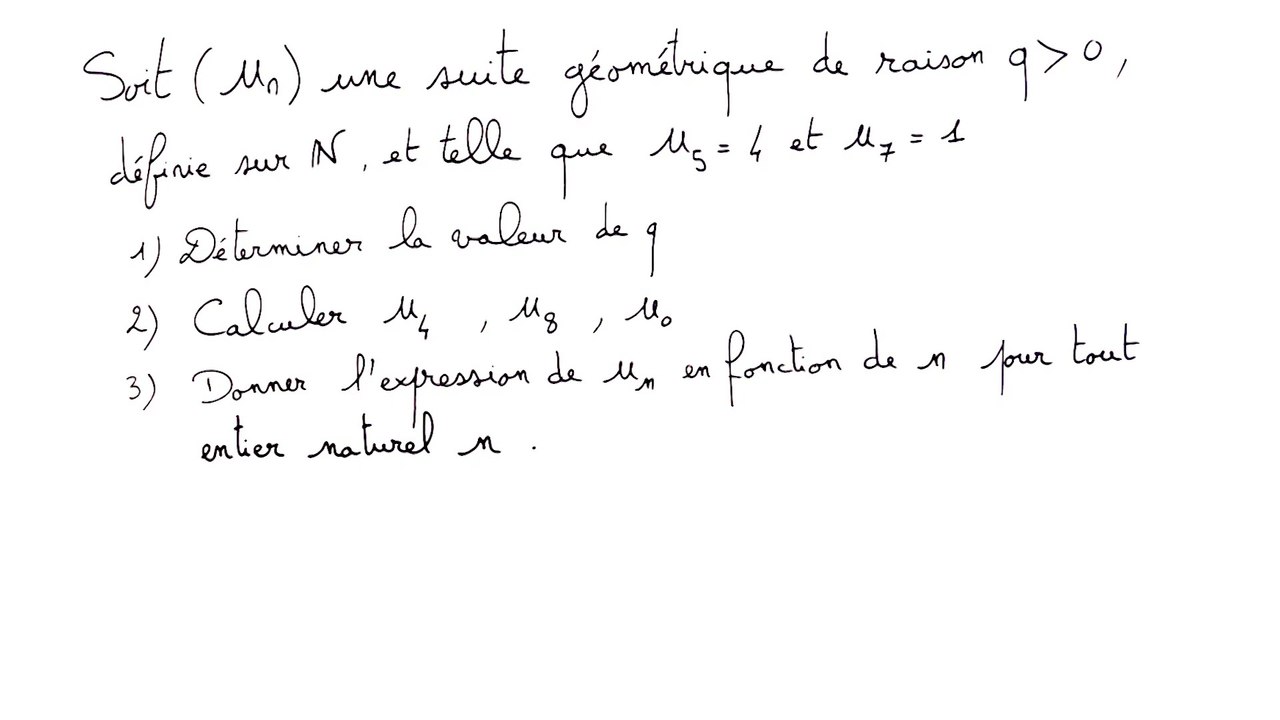 Soit (u_n) une suite géométrique de raison q > 0,
définie sur ℕ, et telle que u_5 = 4 et u_7 = 1
1) Déterminer la valeur de q
2) Calculer u_4 , u_8 , u_0
3) Donner l'expression de u_n en fonction de n pour tout
entier naturel n .